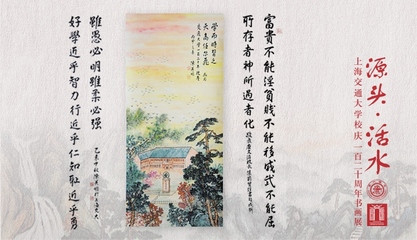 源头·活水
上海交通大学校庆一百二十周年书画展
富貴不能淫貧賤不能移威武不能屈
所存者神所過者化
學而時習之
天高任尔飛
雖愚必明雖柔必强
好學近乎智力行近乎仁知耻近乎勇